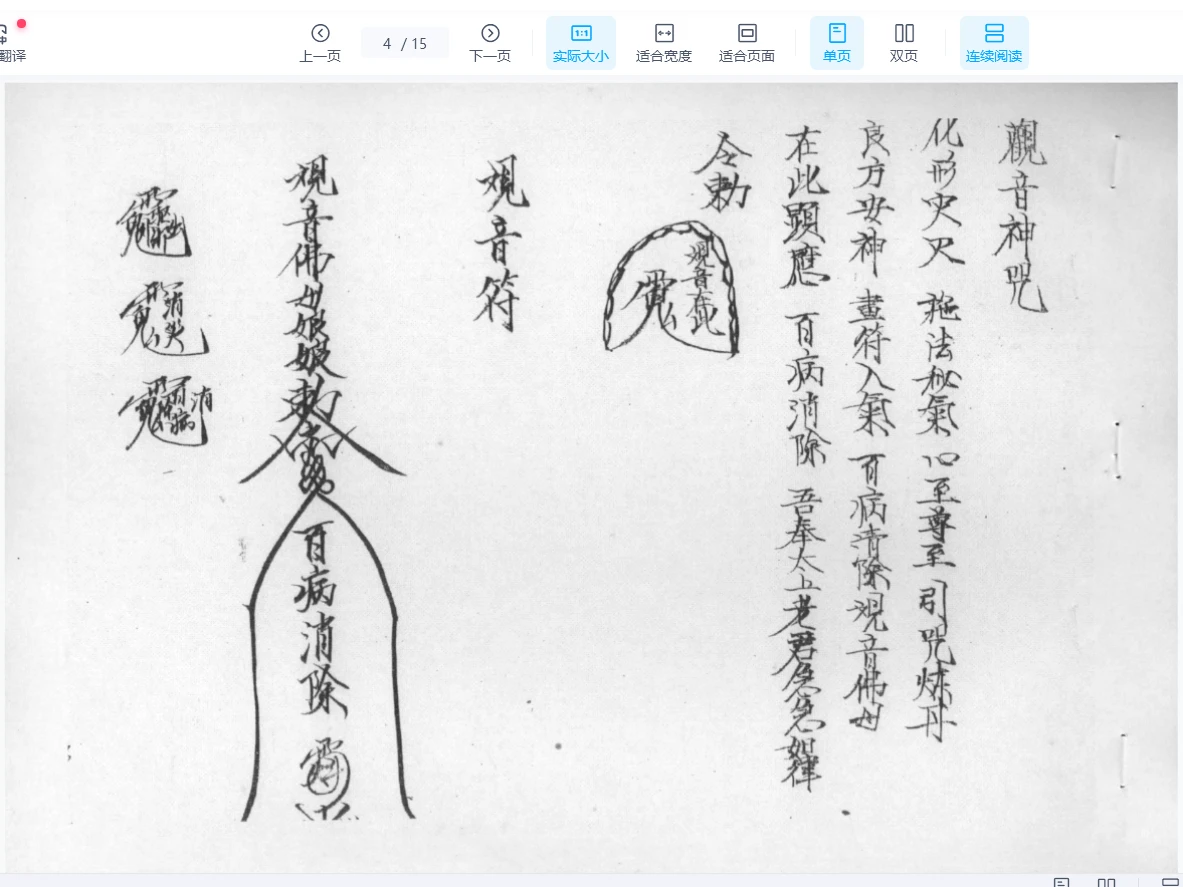 翻译
上一页
4 / 15
下一页
1:1
实际大小
适合宽度
适合页面
单页
双页
连续阅读
觀音神咒
化形灾灭 施法秘氣 心至尊至 引咒炼丹
良方安神 畫符入氣 百病清除 观音佛母
在此顕應 百病消除 吾奉太上老君急急如律
令勅
观音在此
观音符
观音佛母娘娘勅令
百病消除
消
百病